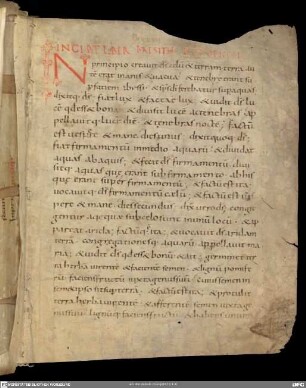 INCIPIT LIBER
N principio creauit ds celu & terram terra au
te erat inanis & uacua & tenebre erant su
p faciem abissi & sps di ferebatur sup aquas
dixitq; ds fiat lux & facta e lux & uidit ds lu
ce qd ess& bona & diuisit luce ac tenebras ap
pellauitq; luce die & tenebras nocte factu
est uespere & mane dies unus dixit quoq; ds
fiat firmamentu in medio aquaru & diuidat
aquas ab aquis & fecit ds firmamentu diui
sitq; aquas que erant sub firmamento ab his
que erant super firmamentu & factu est ita
uocauitq; ds firmamentu celu & factu est ues
pere & mane dies secundus dix uero ds congre
gentur aque que sub celo sunt in unu locu & ap
pareat arida factuq; e ita & uocauit ds aridam
terra congregationesq; aquaru appellauit ma
ria & uidit ds qd ess& bonu & ait germinet ter
ra herba uirente & faciente semen & lignu pomife
ru faciens fructu iuxta genus suu cuius semen in
semetipso sit sup terra & factu est ita & protulit
terra herba uirente & afferente semen iuxta ge
nus suu lignuq; faciens fructu & habens unum